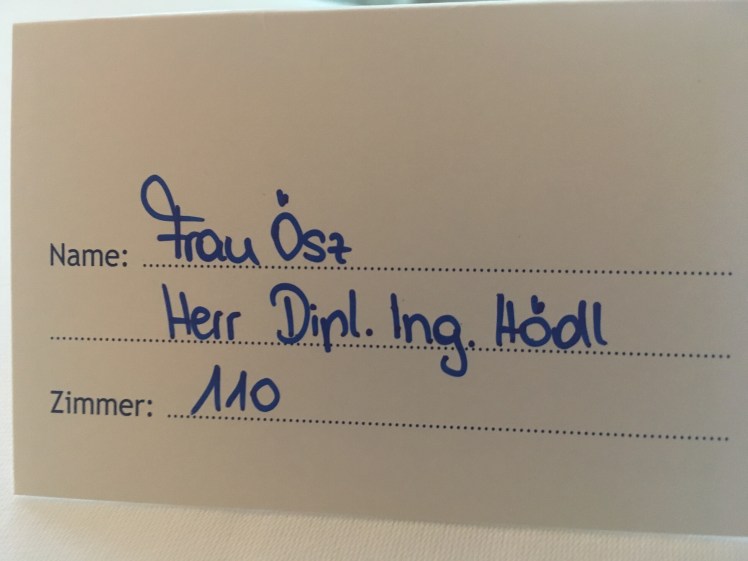 Name: Frau Ösz
Herr Dipl. Ing. Hödl
Zimmer: 110